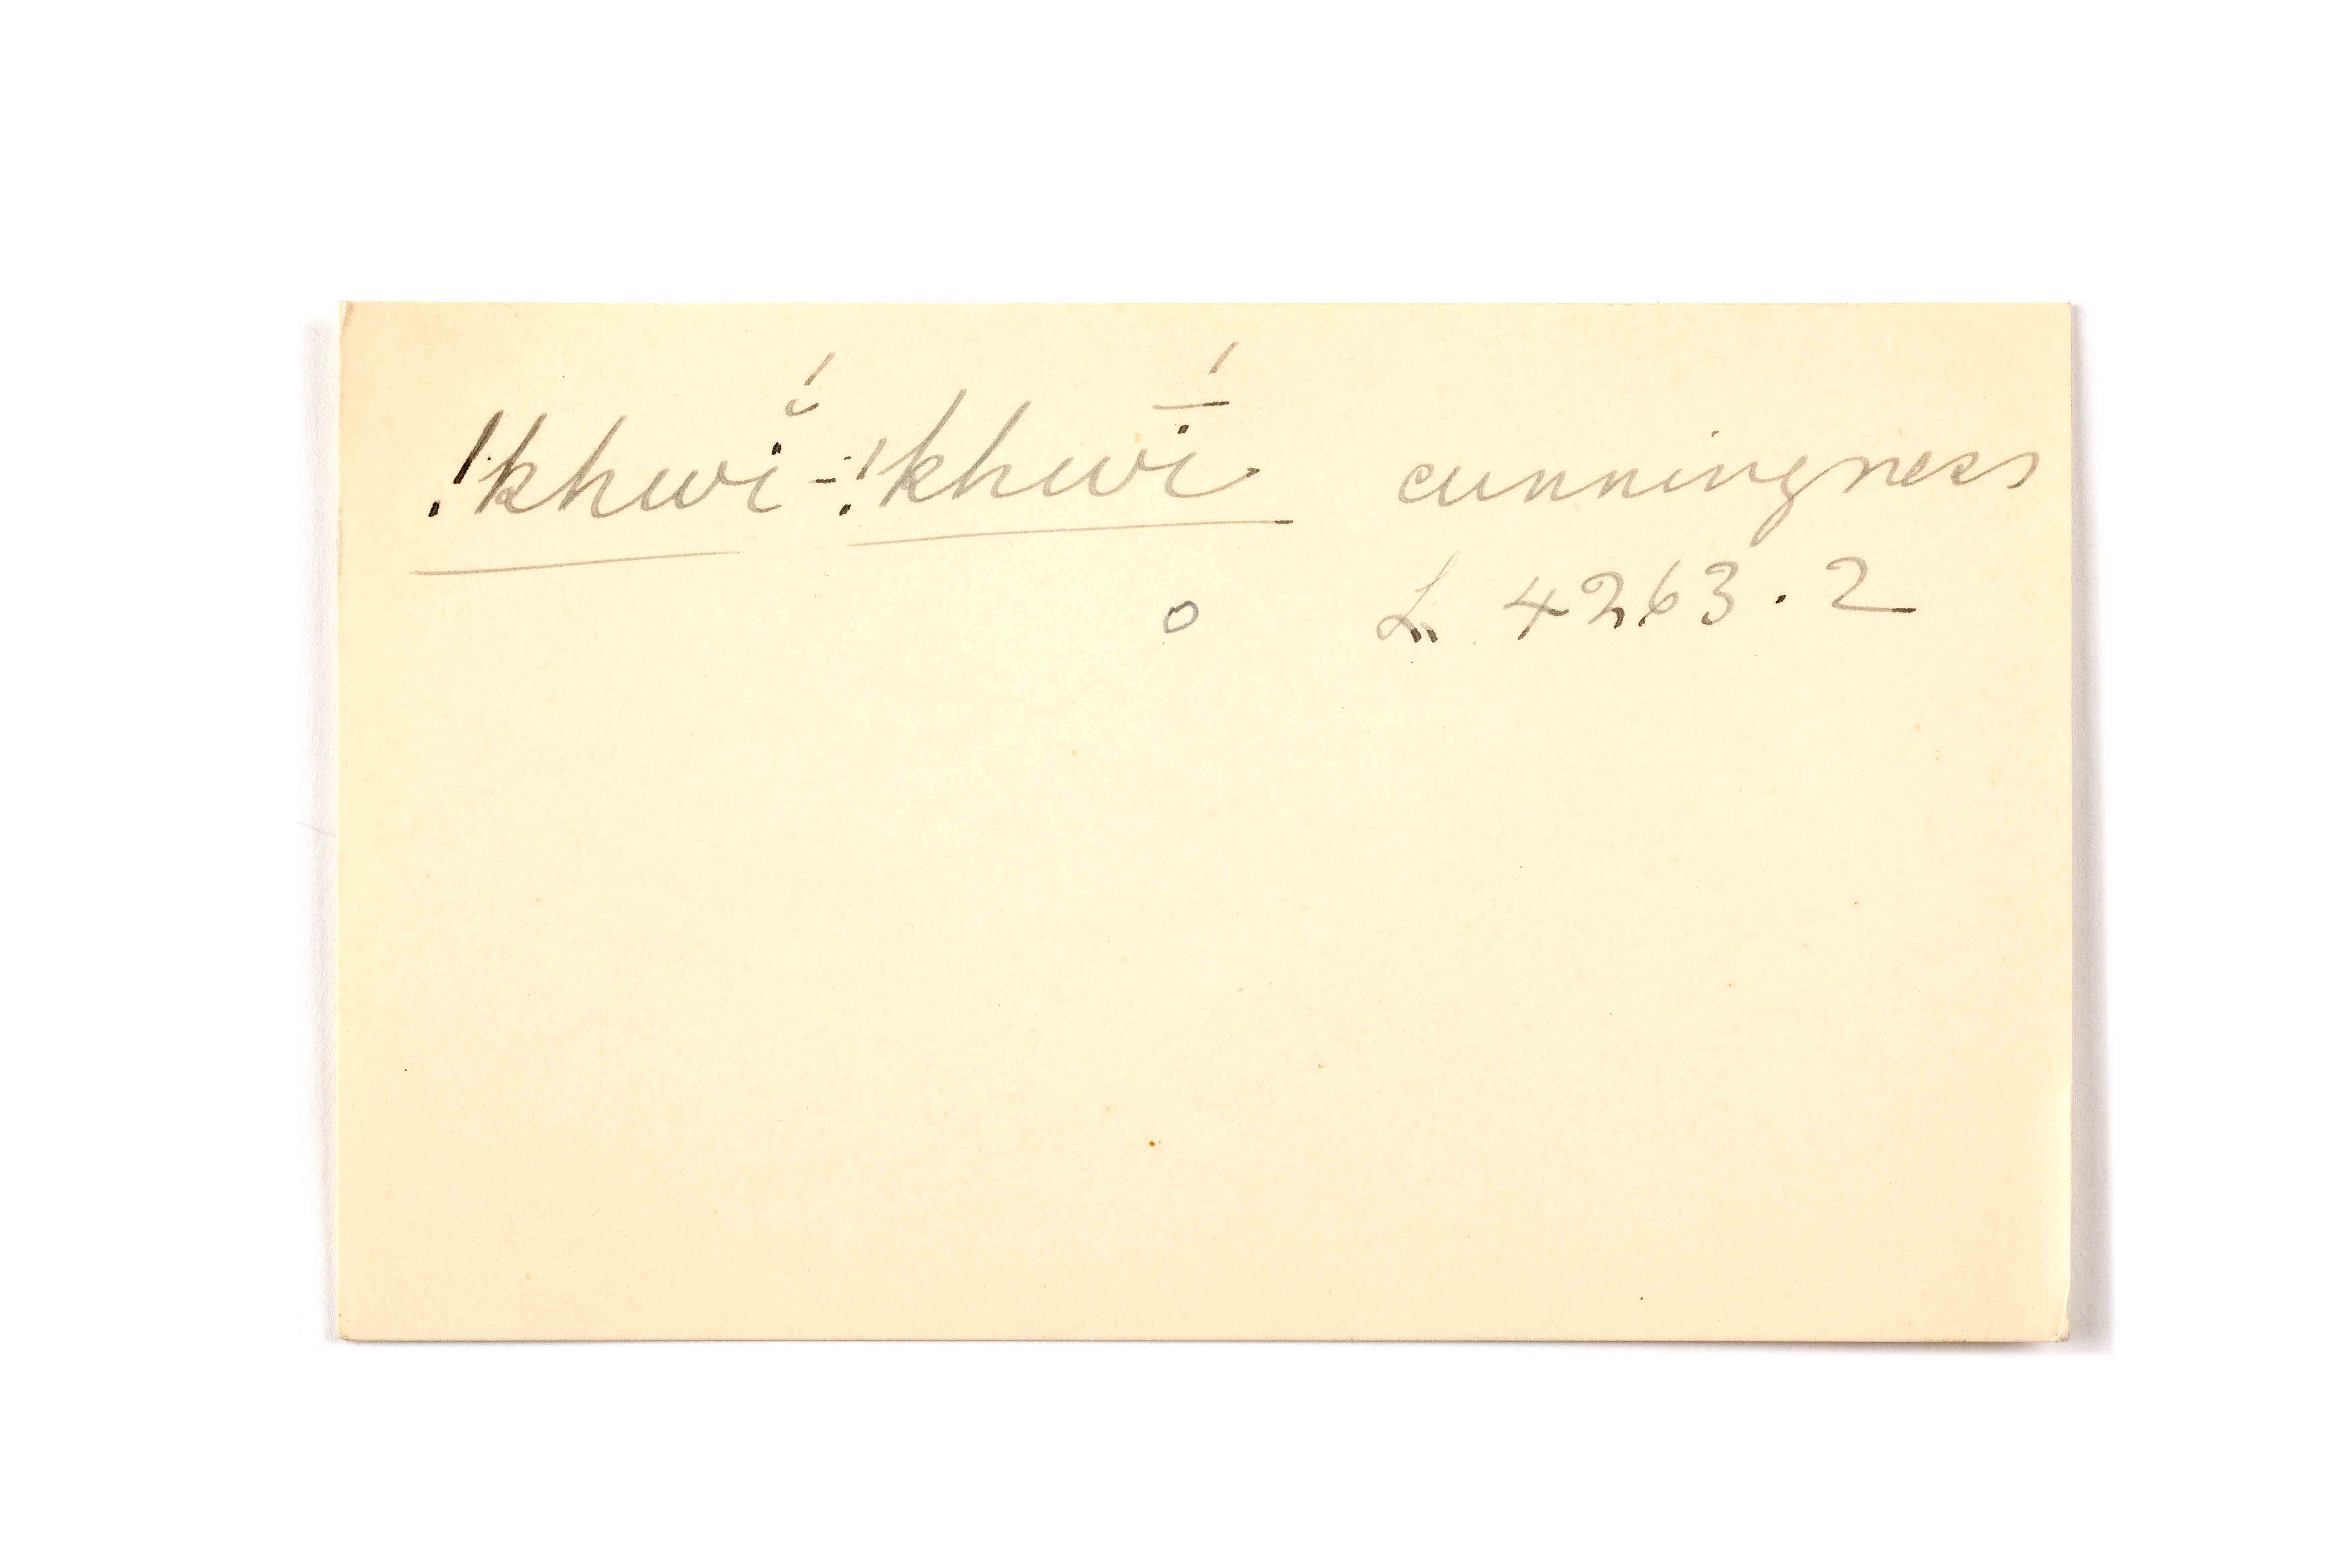 !khwĭ́-!khwī́ cunningness
o L. 4263.2